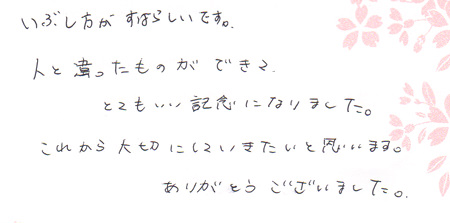 いぶし方が すばらしいです。
人と違ったものが できて
とてもいい記念になりました。
これから大切にしていきたいと思います。
ありがとうございました。